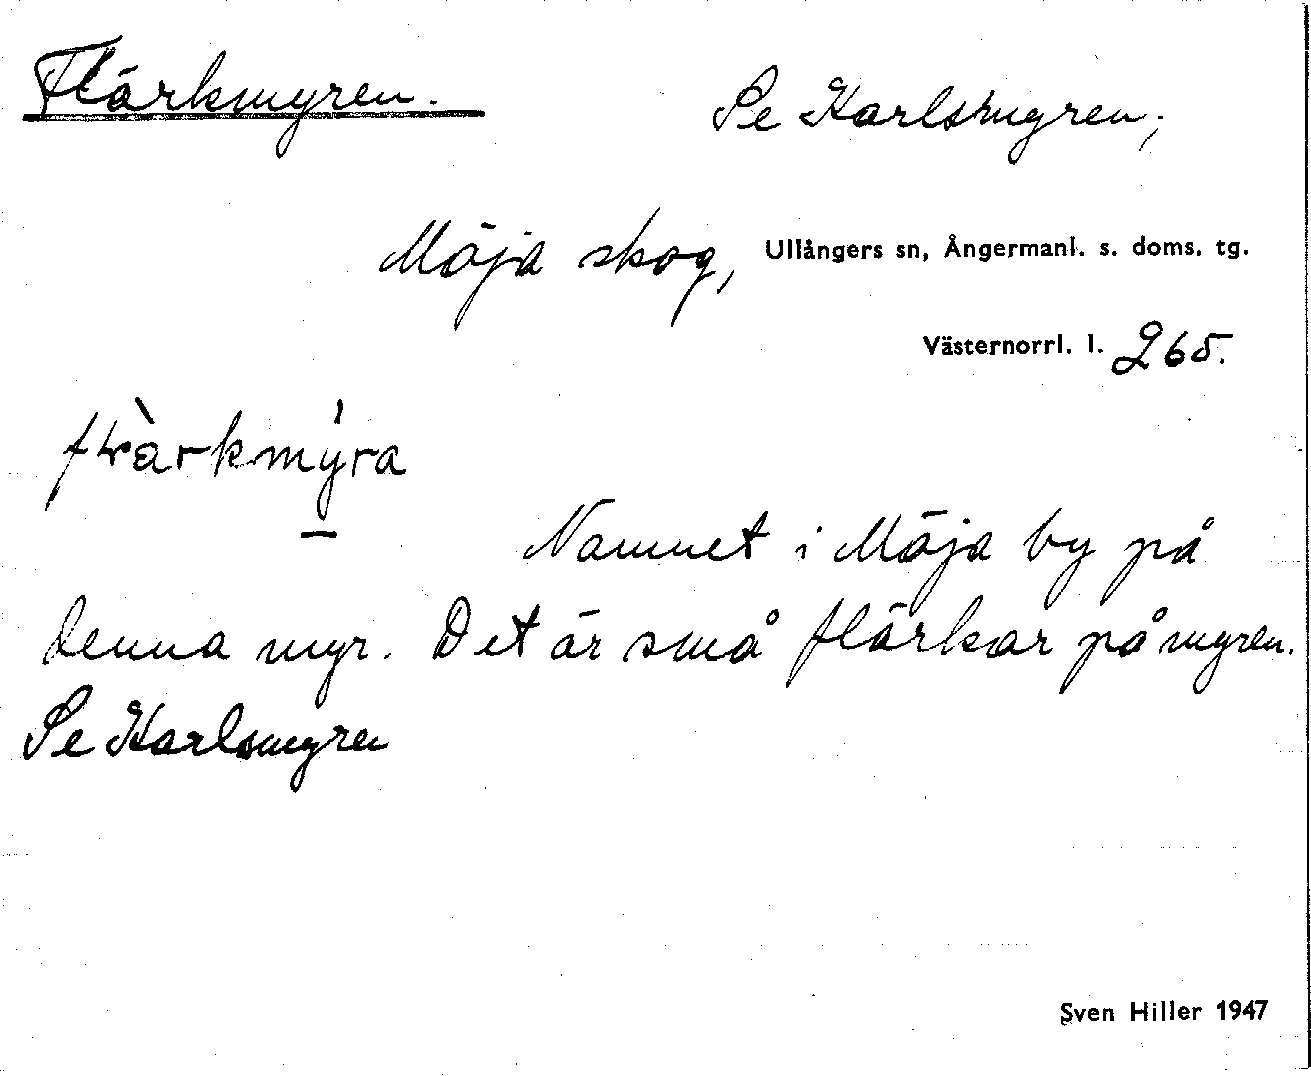 Flärkmyren.
Se Karlsmyren;
Möja skog, Ullångers sn, Ångermanl. s. doms. tg.
Västernorrl. l. 265.
Nammet i Möja by på
denna myr. Det är små flärkar på myren.
Se Karlsmyren
Sven Hiller 1947